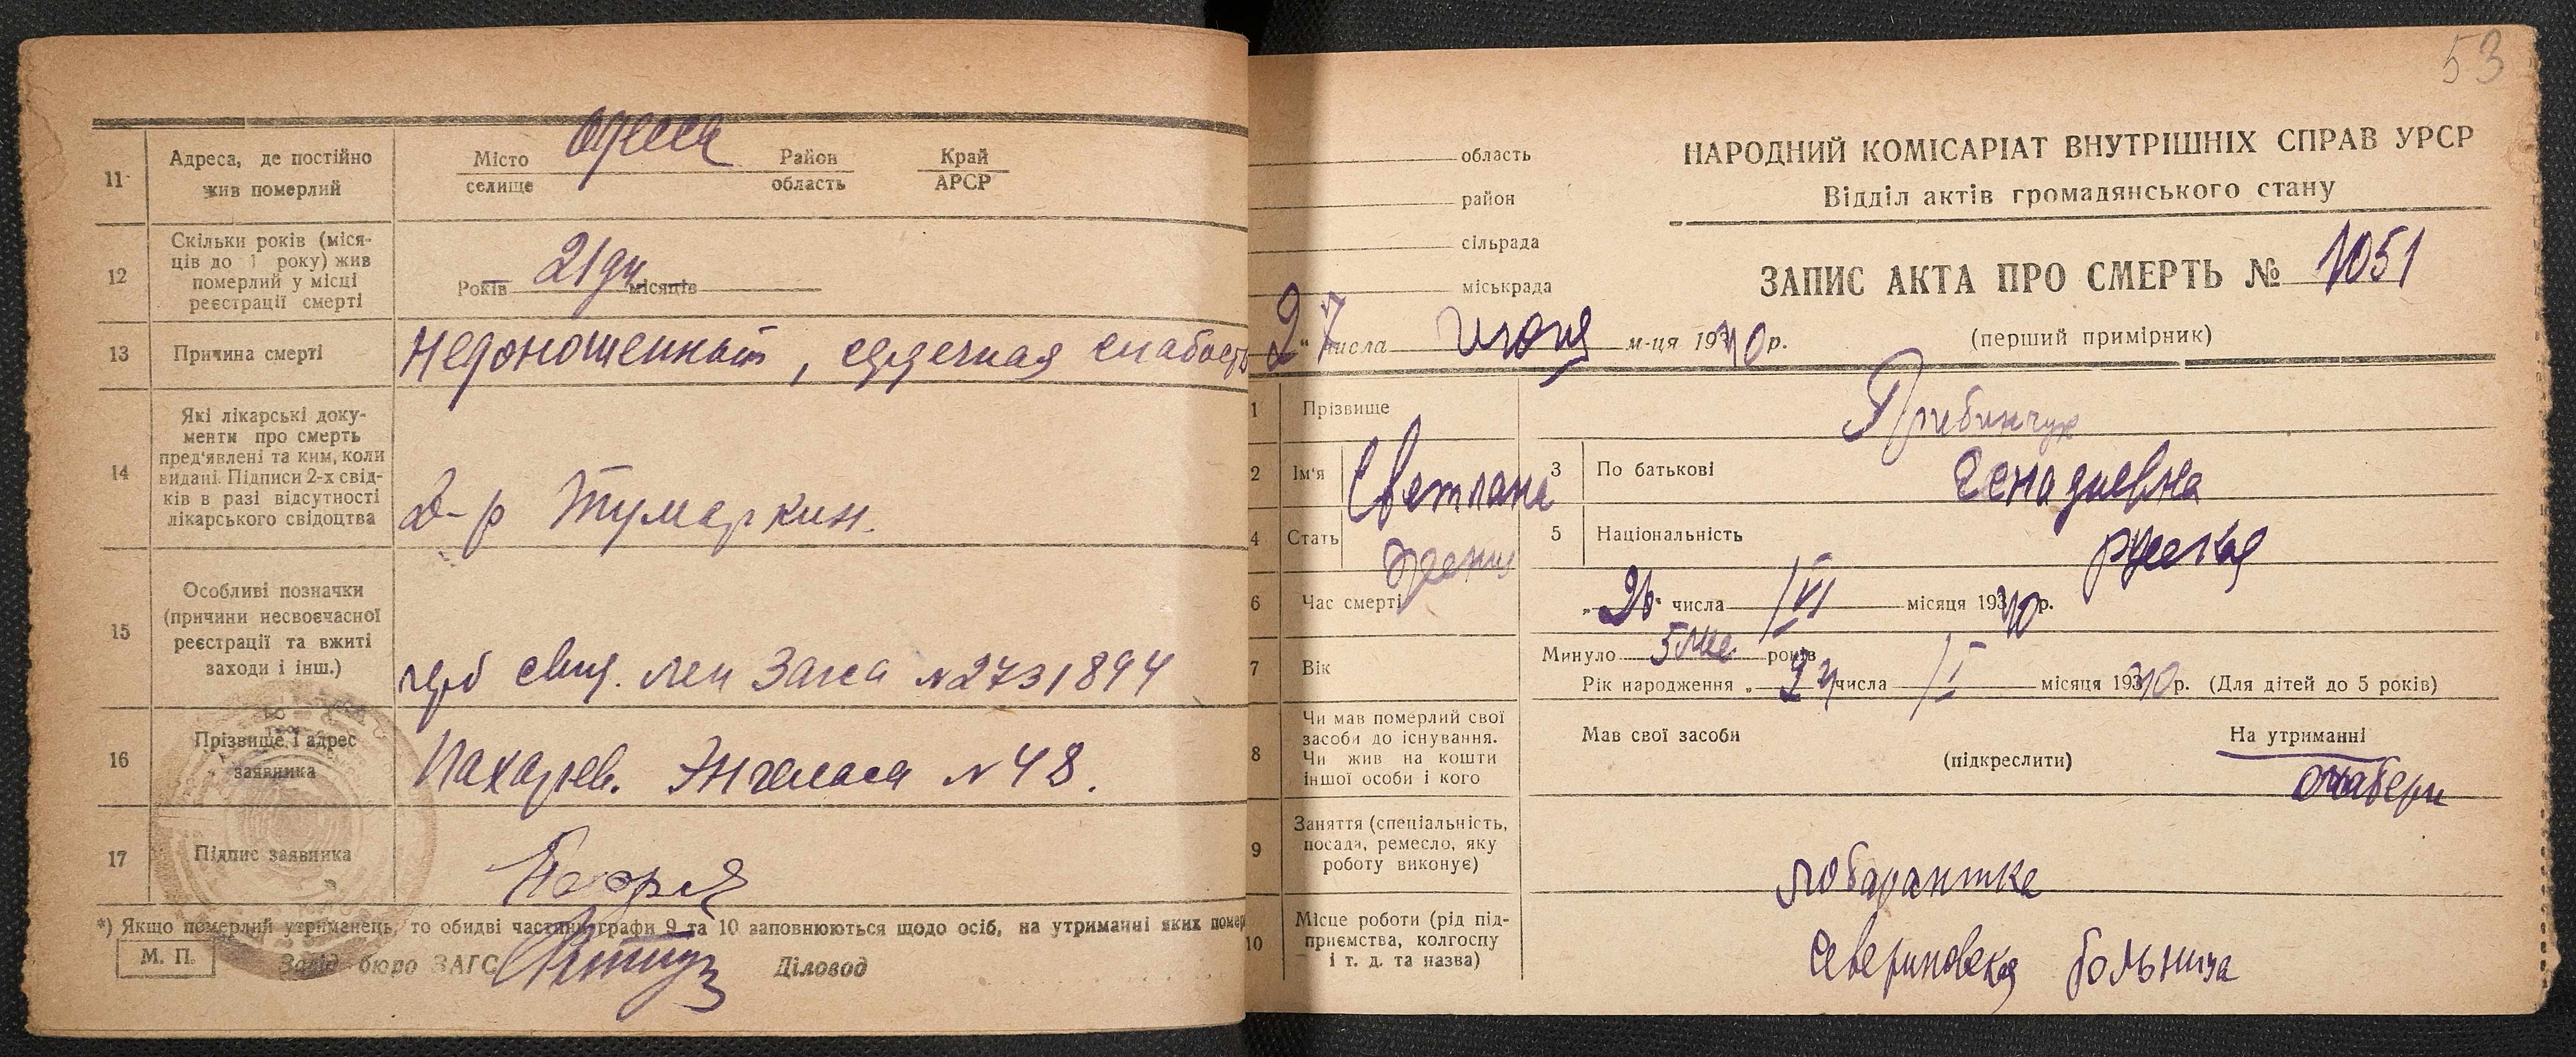 11
Адреса, де постійно
жив померлий
Місто
селище
Одесса
Район
область
Край
АРСР
12
Скільки років (міся-
ців до 1 року) жив
померлий у місці
реєстрації смерті
Років 21 дн місяців
13
Причина смерті
Недоношенность, сердечная слабость
14
Які лікарські доку-
менти про смерть
пред'явлені та ким, коли
видані. Підписи 2-х свід-
ків в разі відсутності
лікарського свідоцтва
Д-р Тумаркин.
15
Особливі позначки
(причини несвоєчасної
реєстрації та вжиті
заходи і інш.)
свид. Лен Загса N2731894
16
Прізвище і адрес
заявника
Энгельса N 48.
17
Підпис заявника
*) Якщо померлий утриманець, то обидві частини графи 9 та 10 заповнюються щодо осіб, на утриманні яких помер
М. П.
Завід. бюро ЗАГС
Діловод
53
область
район
сільрада
міськрада
НАРОДНИЙ КОМІСАРІАТ ВНУТРІШНІХ СПРАВ УРСР
Відділ актів громадянського стану
ЗАПИС АКТА ПРО СМЕРТЬ № 1051
(перший примірник)
27 числа Июня м-ця 1940 р.
1
Прізвище
Грибинчук
2
Ім'я
Светлана
3
По батькові
Генадиевна
4
Стать
женск
5
Національність
русская
6
Час смерті
„26" числа VI місяця 1940 р.
7
Вік
Минуло 5 мес. років
Рік народження „24 числа I місяця 1940 р. (Для дітей до 5 років)
8
Чи мав померлий свої
засоби до існування.
Чи жив на кошти
іншої особи і кого
Мав свої засоби
(підкреслити)
На утриманні
матери
9
Заняття (спеціальність,
посада, ремесло, яку
роботу виконує)
лобарантка
10
Місце роботи (рід під-
приємства, колгоспу
і т. д. та назва)
Севериновская больница